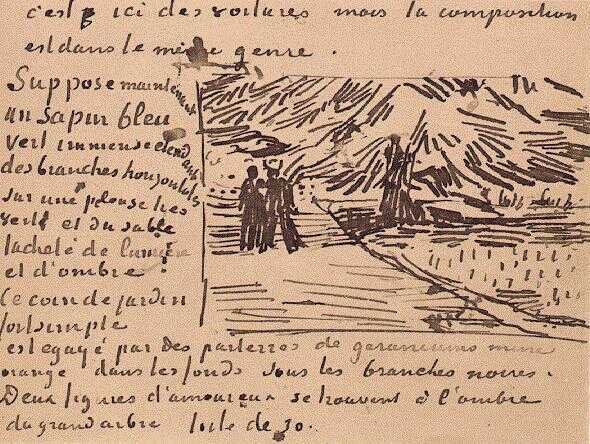 c'est ici des voitures mais la composition
est dans le même genre.
Suppose maintenant
un sapin bleu
vert immense étendant
des branches horizontales
sur une pelouse très
verte et du sable
tacheté de lumière
et d'ombre.
Ce coin de jardin
fort simple
est égayé par des parterres de geraniums mine
orange dans les fonds sous les branches noires.
Deux figures d'amoureux se trouvent à l'ombre
du grand arbre toile de 30.